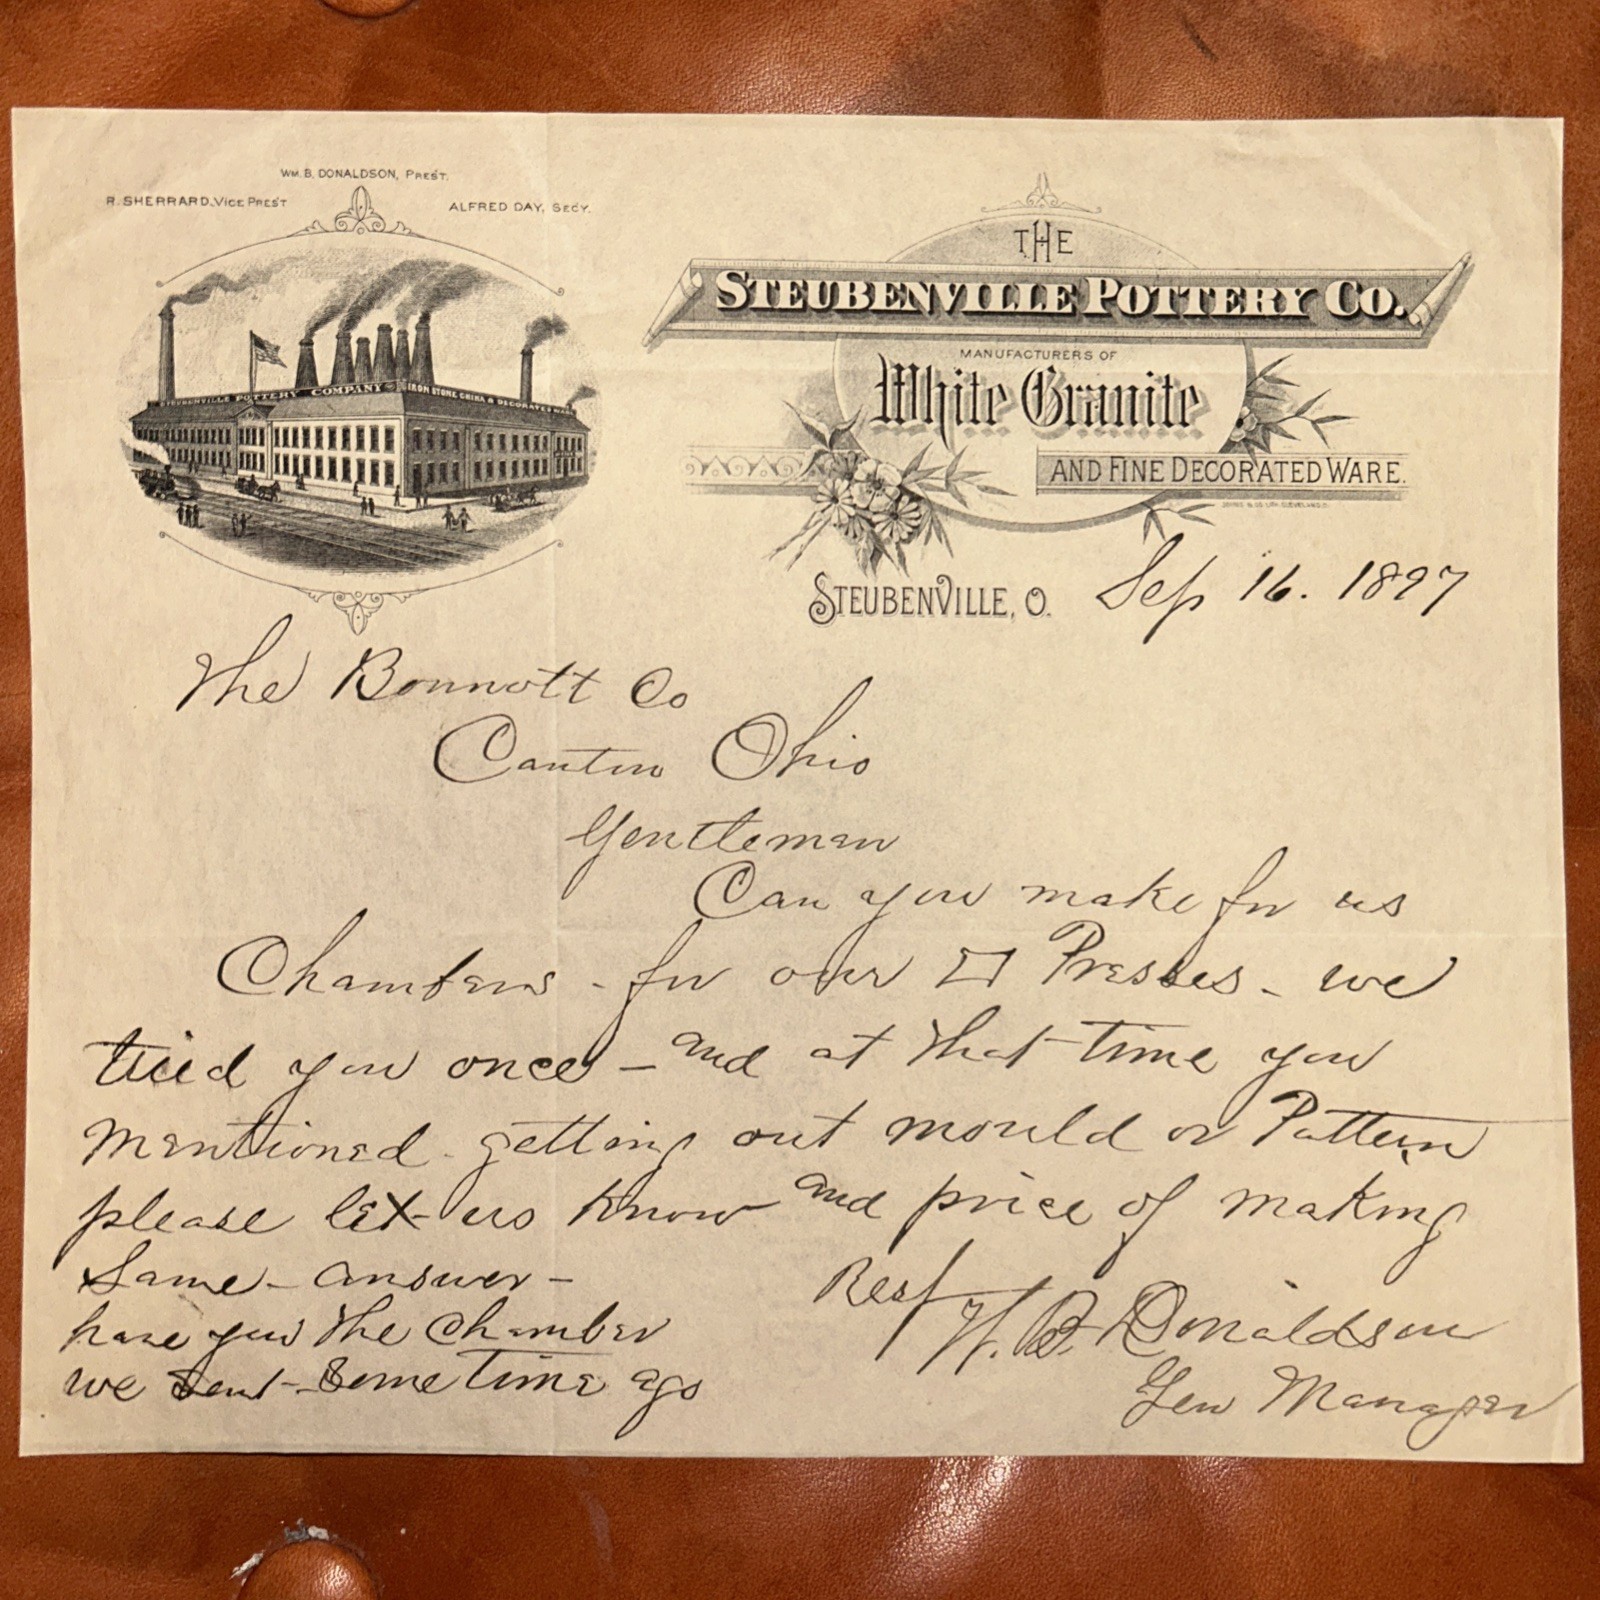 WM. B. DONALDSON, PRES'T.
R. SHERRARD, VICE PRES'T
ALFRED DAY, SEC'Y.
STEUBENVILLE POTTERY COMPANY IRON STONE CHINA & DECORATED WARE
THE
STEUBENVILLE POTTERY CO.
MANUFACTURERS OF
White Granite
AND FINE DECORATED WARE.
STEUBENVILLE, O. Sep 16. 1897
The Bonnott Co
Canton Ohio
Gentleman
Can you make for us
Chambers - for our □ Presses - we
tried you once - and at that time you
mentioned getting out mould or Pattern
please let us know and price of making
Same - answer -
have you the chamber
we sent - some time ago
Resf
W. B. Donaldson
Gen Manager